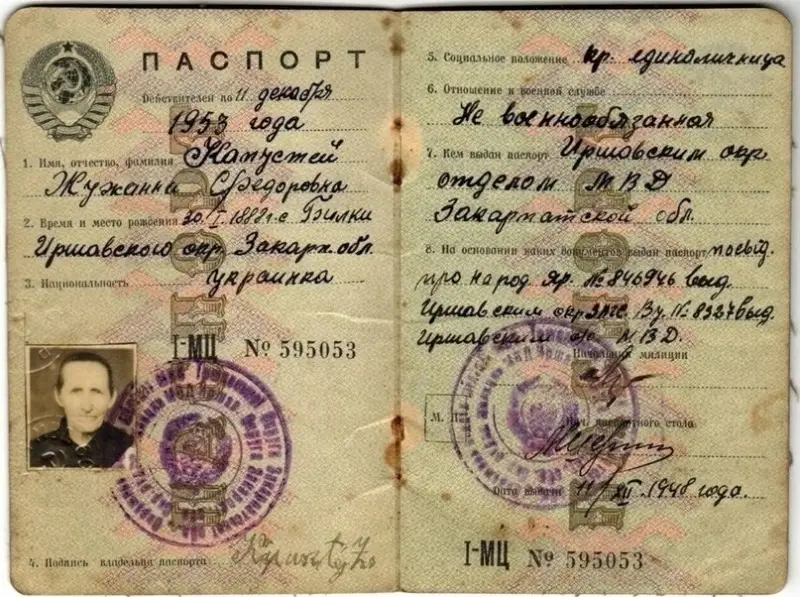 ПАСПОРТ
Действителен по 11 декабря
1953 года
1. Имя, отчество, фамилия Капустей
Жужанна Федоровна
2. Время и место рождения 30/I 1888 г. с. Билки
Иршавского окр. Закарп. обл.
3. Национальность украинка
I-МЦ № 595053
4. Подпись владельца паспорта
5. Социальное положение кр. единоличница
6. Отношение к военной службе
Не военнообязанная
7. Кем выдан паспорт Иршавским окр
отделом МВД
Закарпатской обл.
8. На основании каких документов выдан паспорт посвід.
про народ. № 846946 выд.
Иршавским окр № 8327 выд.
Иршавским МВД.
Начальник милиции
М. П.
Нач. паспортного стола
Дата выдачи 11/XII 1948 года.
I-МЦ № 595053